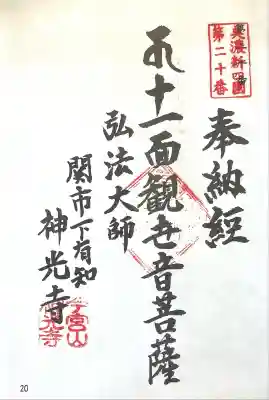 美濃新四国
第二十番
奉納経
十一面観世音菩薩
弘法大師
関市下有知
神光寺
宮山
光寺
20